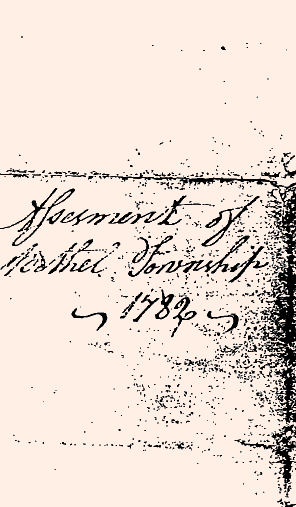 Assesment of
Bethel Township
~ 1782 ~